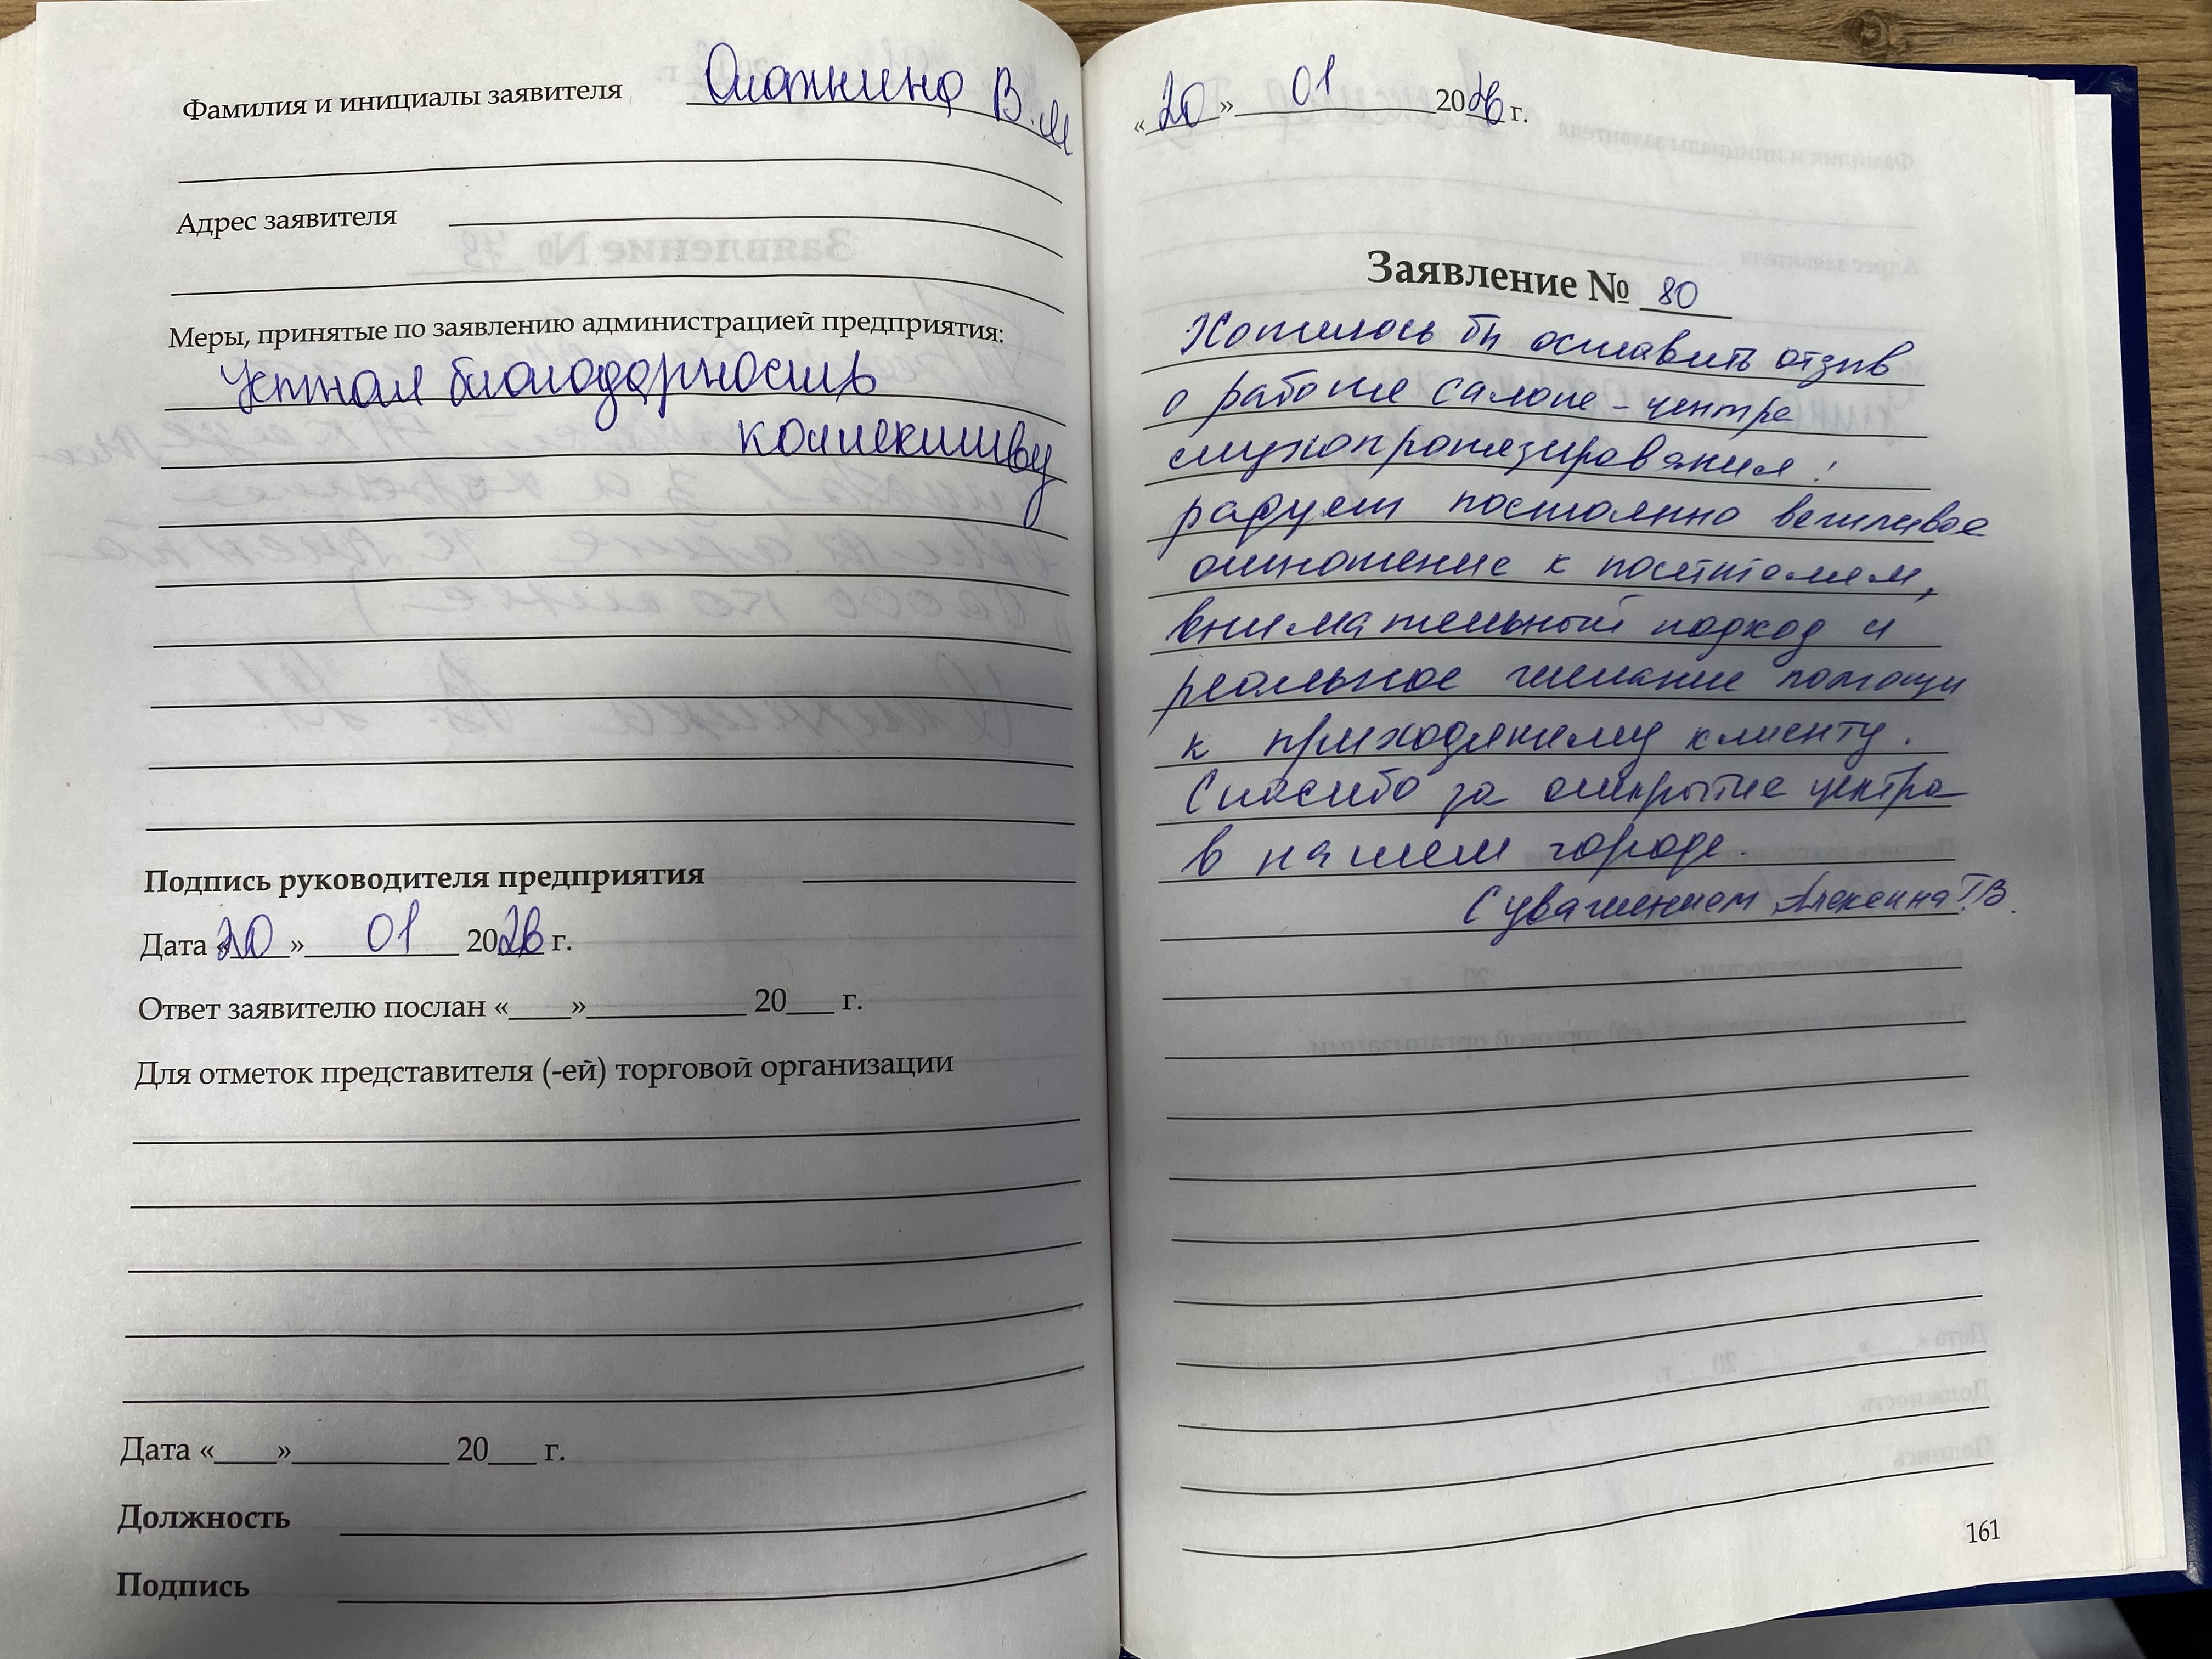 Фамилия и инициалы заявителя В.М
Адрес заявителя
Меры, принятые по заявлению администрацией предприятия:
Устная благодарность
коллективу
Подпись руководителя предприятия
Дата «20» 01 2026 г.
Ответ заявителю послан «____»__________ 20___ г.
Для отметок представителя (-ей) торговой организации
Дата «____»__________ 20___ г.
Должность
Подпись
«20» 01 2026 г.
Заявление № 80
Хотелось бы оставить отзыв
о работе салоне - центра
слухопротезирования:
радует постоянно вежливое
отношение к посетителям,
внимательный подход и
реальное желание помощи
к приходящему клиенту.
Спасибо за открытие центра
в нашем городе.
С уважением Алексина Т.В.
161